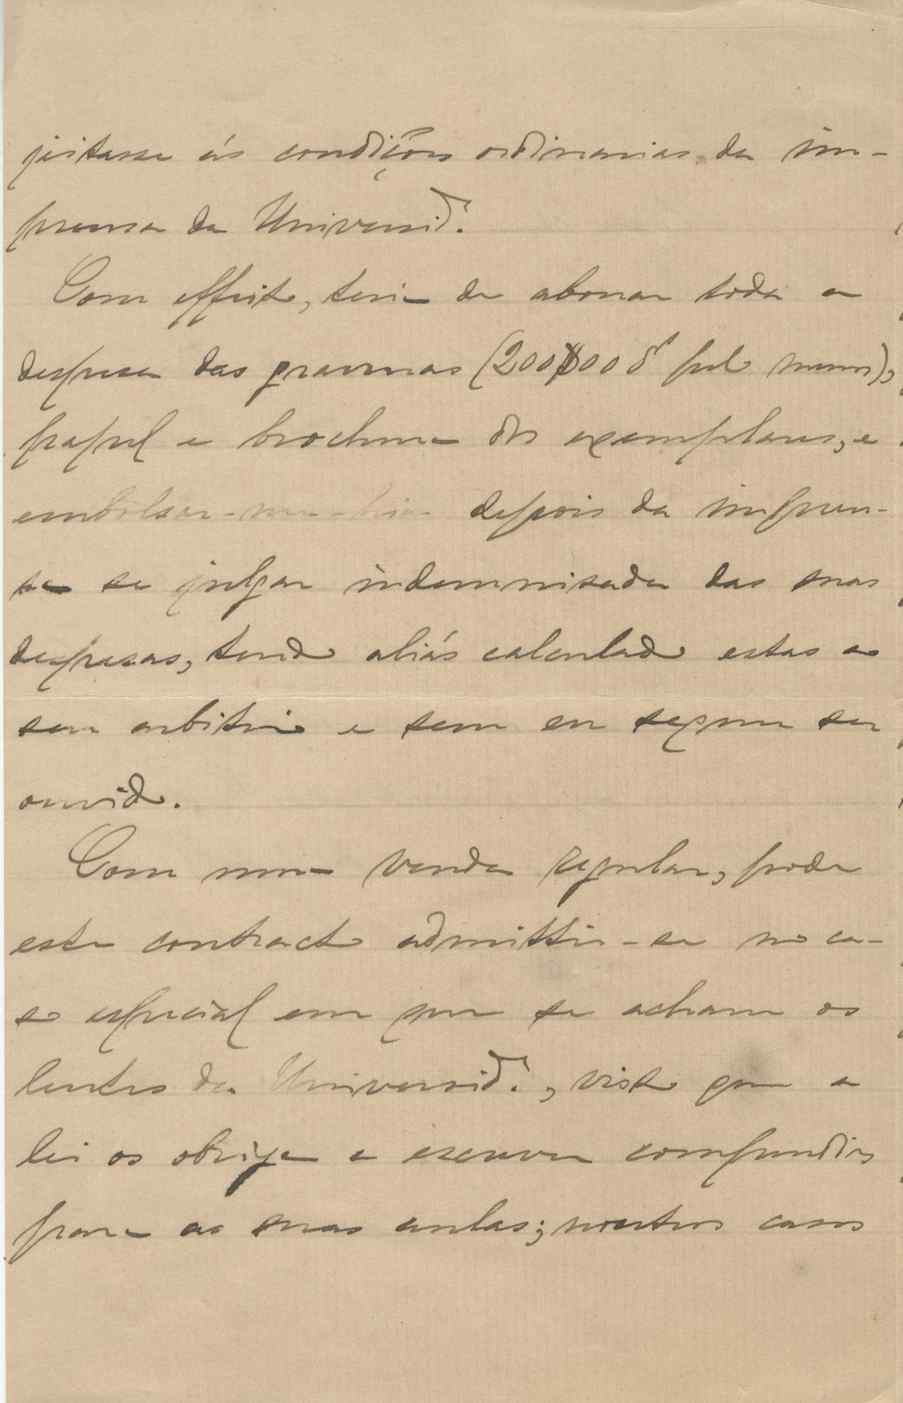 jeitasse ás condições ordinarias da im-
prensa da Universid.e
Com effeito, teria de abonar toda a
despesa das gravuras (200$000 rs pelo menos),
papel e brochura dos exemplares, e
embolsar-me-hia depois da impren-
sa se julgar indemnisada das suas
despesas, tendo aliás calculado estas a
seu arbitrio e sem eu sequer ser
ouvido.
Com uma venda regular, pode
este contracto admittir-se no ca-
so especial em que se acham os
lentes da Universid.e, visto que a
lei os obriga a escrever compendios
para as suas aulas; noutros casos